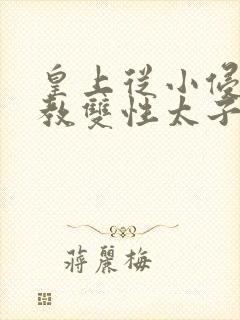 皇上從小
教雙性太子
蔣麗梅